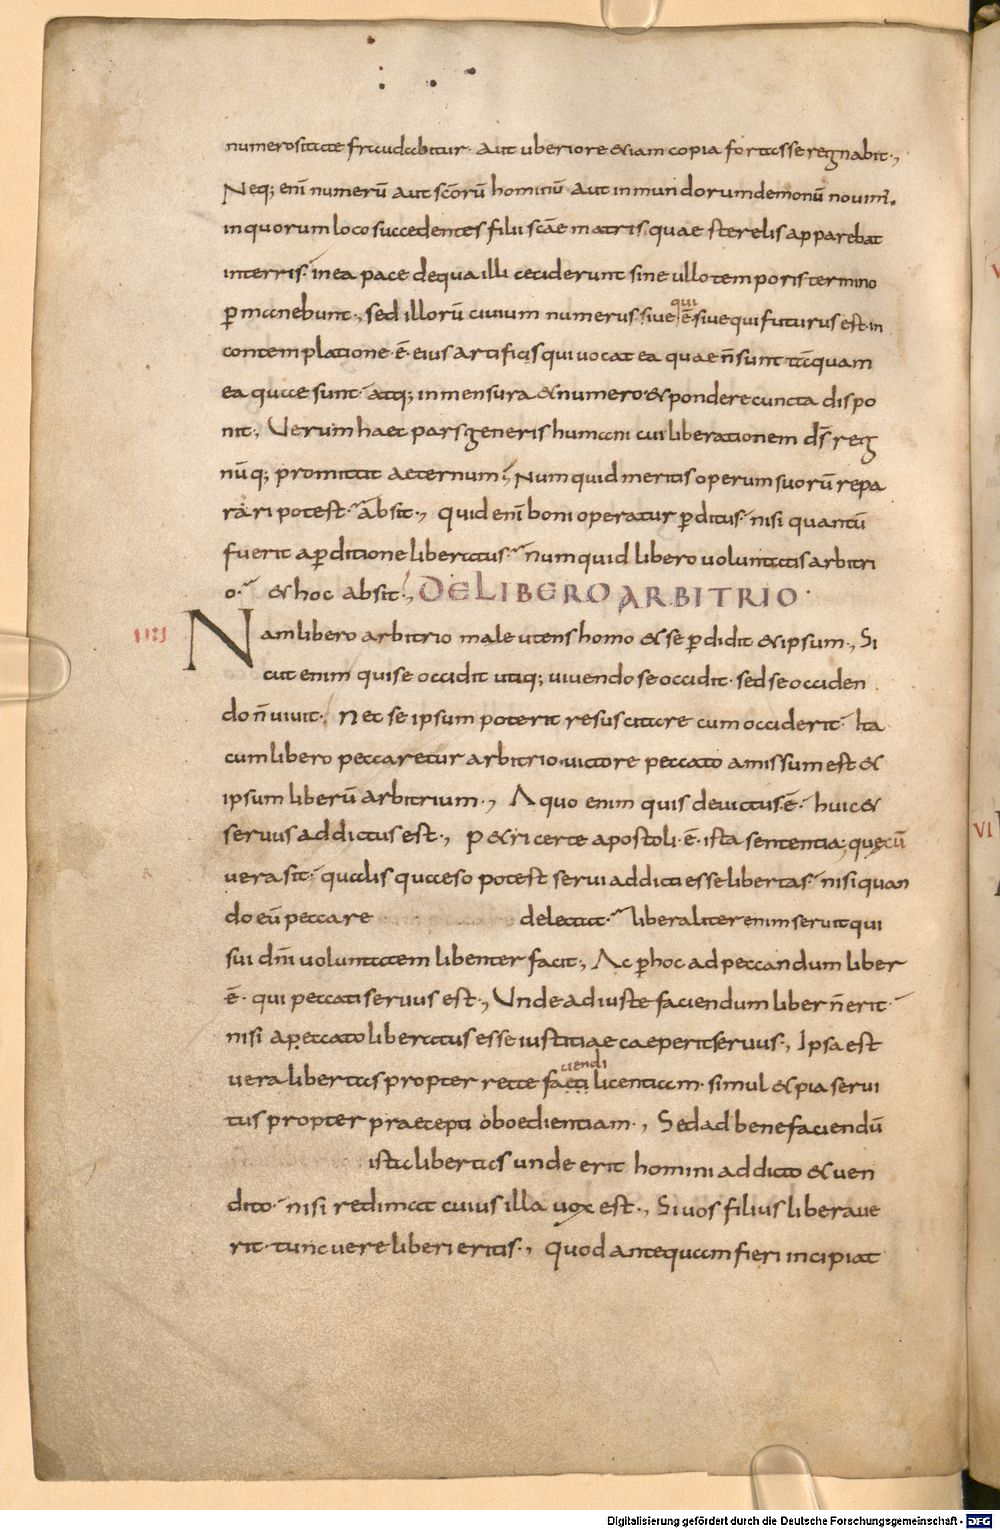 numerositate fraudabitur· aut uberiore &iam copia fortasse regnabit·,
Neq; eni numerū aut scorū hominū aut inmundorum demonū novim'.
in quorum loco succedentes filii scae matris· quae sterelis apparebat
interris· in ea pace de qua illi ceciderunt sine ullo temporis termino
p manebunt·, sed illorū civium numerus· sive qui ē· sive qui futurus est· in
contemplatione· ē· eius artificis qui vocat ea quae n̄ sunt tāquam
ea quae sunt· atq; in mensura & numero· & pondere cuncta dispo
nit·, Verum haec pars generis humani cui liberationem ds̄ reg
nūq; promittit aeternum, Numquid meritis operum suorū repa
rari potest· absit·, quid enī boni operatur pditus· nisi quantū
fuerit a pditione liberatus· numquid libero voluntatis arbitri
o· & hoc absit·, DE LIBERO ARBITRIO·
IIII Nam libero arbitrio male utens homo & se pdidit & ipsum·, Si
cut enim qui se occidit utiq; vivendo se occidit· sed se occiden
do n̄ vivit· Nec se ipsum poterit resuscitare cum occiderit· Ita
cum libero peccaretur arbitrio· victore peccato amissum est &
ipsum liberū arbitrium·, A quo enim quis devictus· ē· huic &
servus addictus est·, P&ri certe apostoli· ē· ista sententia· quę cū
vera sit· qualis quaeso potest servi addicti esse libertas· nisi quan
do eū peccare delectat· liberaliter enim servit qui
sui dn̄i voluntatem libenter facit·, Ac phoc ad peccandum liber
ē· qui peccati servus est·, Unde ad iuste faciendum liber n̄ erit·
nisi a peccato liberatus esse iustitiae caeperit servus·, Ipsa est
vera libertas propter recte facti ciendi licentiam· simul & pia servi
tus propter praecepti oboedientiam·, Sed ad bene faciendū
ista libertas unde erit homini addicto & ven
dito· nisi redimat cuius illa vox est·, Si vos filius liberave
rit· tunc vere liberi eritis·, Quod antequam fieri incipiat
VI
Digitalisierung gefördert durch die Deutsche Forschungsgemeinschaft - DFG